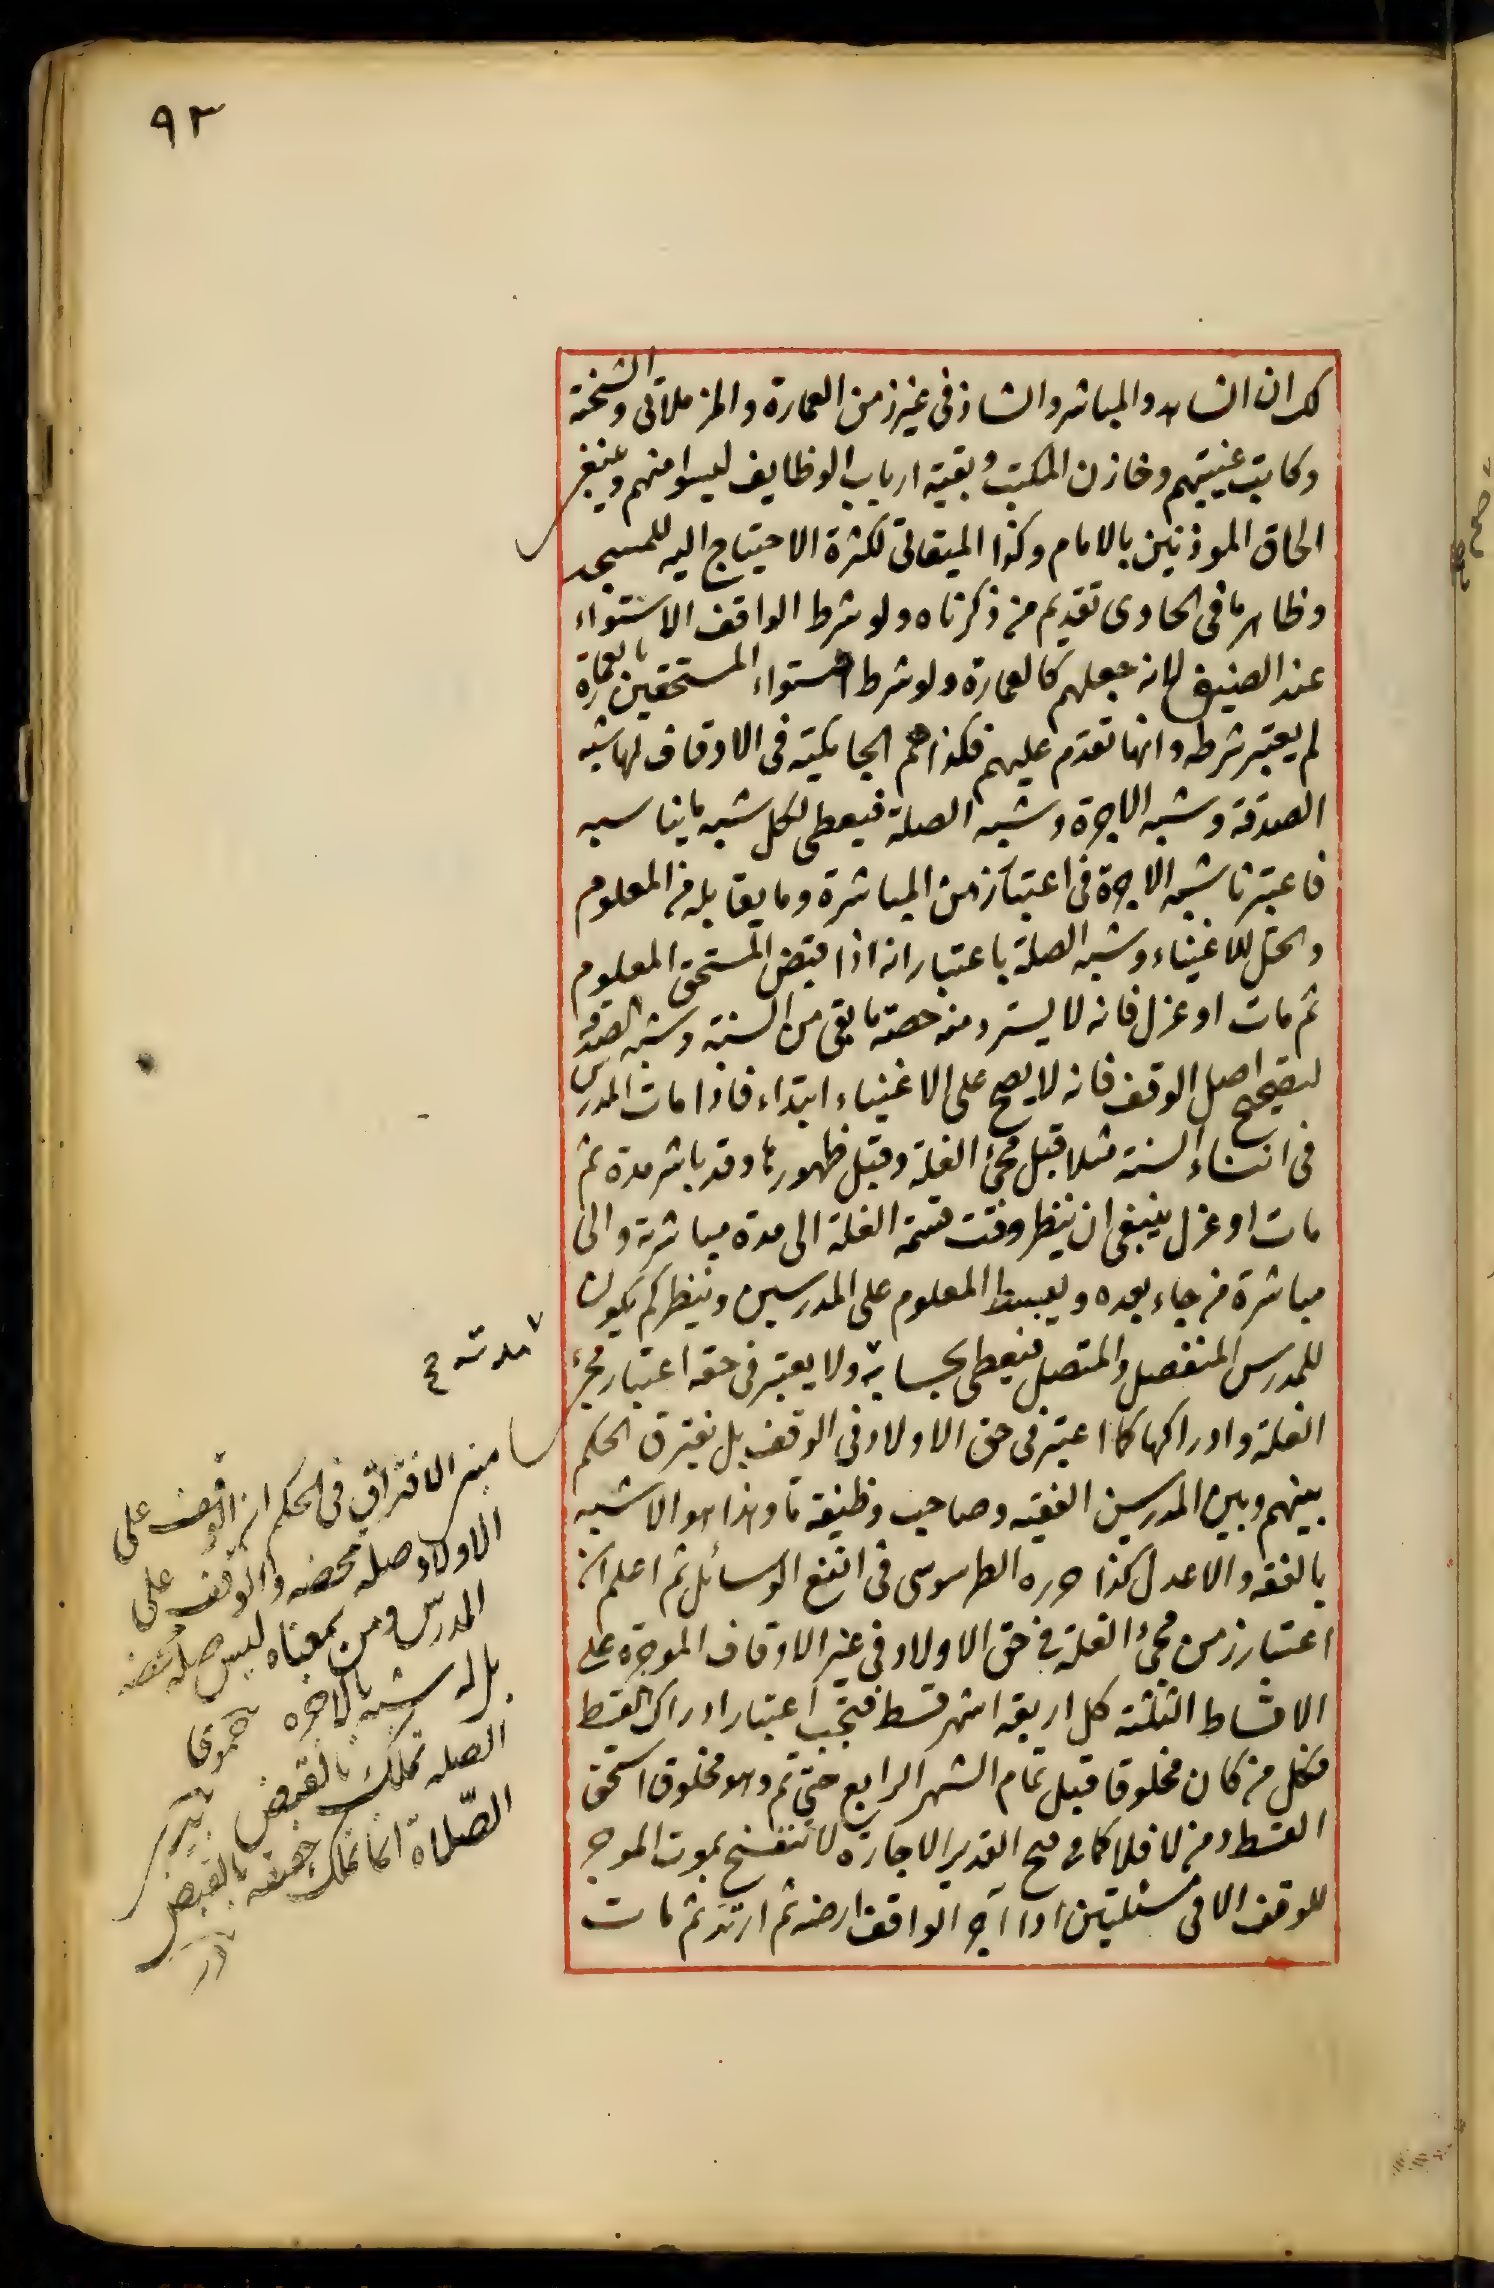 ٩٣
لك ان الشاهد والمباشر والشاد في غير زمن العمارة والمزملاتي والشحنة
وكاتب غيبتهم وخازن الكتب وبقية ارباب الوظايف ليسوا منهم وينبغي
الحاق الموذنين بالامام وكذا الميقاتي لكثرة الاحتياج اليه للمسجد
وظاهر ما في الحاوى تقديم من ذكرناه ولو شرط الواقف الاستواء
عند الضيق لانه جعلهم كالعمارة ولو شرط استواء المستحقين بالعمارة
لم يعتبر شرطه وانها تقدم عليهم فكذا هم الجامكية في الاوقاف لها شبه
الصدقة وشبه الاجرة وشبه الصلة فيعطى لكل شبه ما يناسبه
فاعتبرنا شبه الاجرة في اعتبار زمن المباشرة وما يقابله من المعلوم
والحل للاغنياء وشبه الصلة باعتبار انه اذا قبض المستحق المعلوم
ثم مات او عزل فانه لا يسترد منه حصة ما بقى من السنة وشبه الصدقة
لتصحيح اصل الوقف فانه لا يصح على الاغنياء ابتداء فاذا مات المدرس
في اثناء السنة مثلا قبل مجئ الغلة وقبل ظهورها وقد باشر مدة ثم
مات او عزل ينبغي ان ينظر وقت قسمة الغلة الى مدة مباشرته والى
مباشرة من جاء بعده ويبسط المعلوم على المدرسين وينظر كم يكون
للمدرس المنفصل والمتصل فيعطى بحساب ولا يعتبر في حقه اعتبار مجئ
الغلة وادراكها كما اعتبر في حق الاولاد في الوقف بل يفترق الحكم
بينهم وبين المدرسين الفقيه وصاحب وظيفة ما وهذا هو الاشبه
بالفقه والاعدل كذا حرره الطرسوسى في انفع الوسائل ثم اعلم ان
اعتبار زمن مجئ الغلة في حق الاولاد في غير الاوقاف الموجرة على
الاقساط الثلثة كل اربعة اشهر قسط فيجب اعتبار ادراك القسط
فكل من كان مخلوقا قبل تمام الشهر الرابع حتى تم وهو مخلوق استحق
القسط ومن لا فلا كما في فتح القدير الاجارة لا تنفسخ بموت الموجر
للوقف الا في مسئلتين اذا آجر الواقف ارضه ثم ارتد ثم مات
مدته ح
مبنى الافتراق في الحكم ان الوقف على
الاولاد صلة محضه والوقف على
المدرس ومن بمعناه ليس صلة محضه
بل له شبه بالاجره حموى
الصله تملك بالقبض
الصلاة انما تملك حقيقه بالقبض